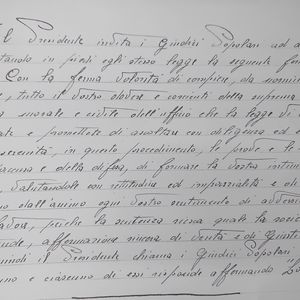 Il Presidente invita i Giudici Popolari ad a
tandosi in piedi egli stesso legge la seguente for
Con la ferma volontà di compiere, da uomini
, tutto il vostro dovere e coscienti della suprema
morale e civile dell'ufficio che la legge di
e promettete di ascoltare con diligenza ed e
serenità, in questo procedimento, le prove e le
accusa e della difesa, di formare la vostra intim
valutandole con rettitudine ed imparzialità e di
no dall'animo ogni vostro sentimento di avversi
poiché la sentenza riesca quale la socie
nde, affermazione nuova di verità e di Giusti
uindi il Presidente chiama i Giudici Popolari
no e ciascuno di essi risponde affermando